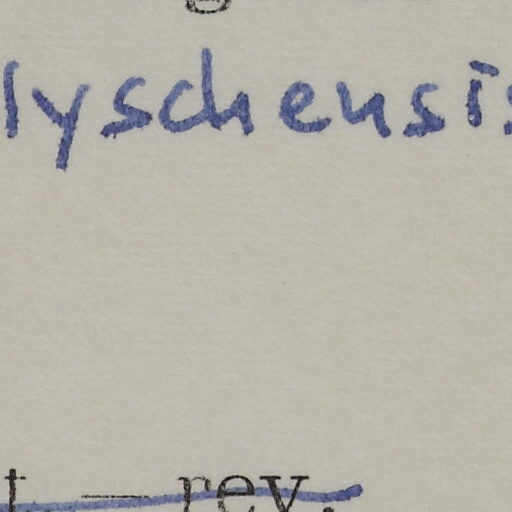 g
lyschensis
t. — rev.